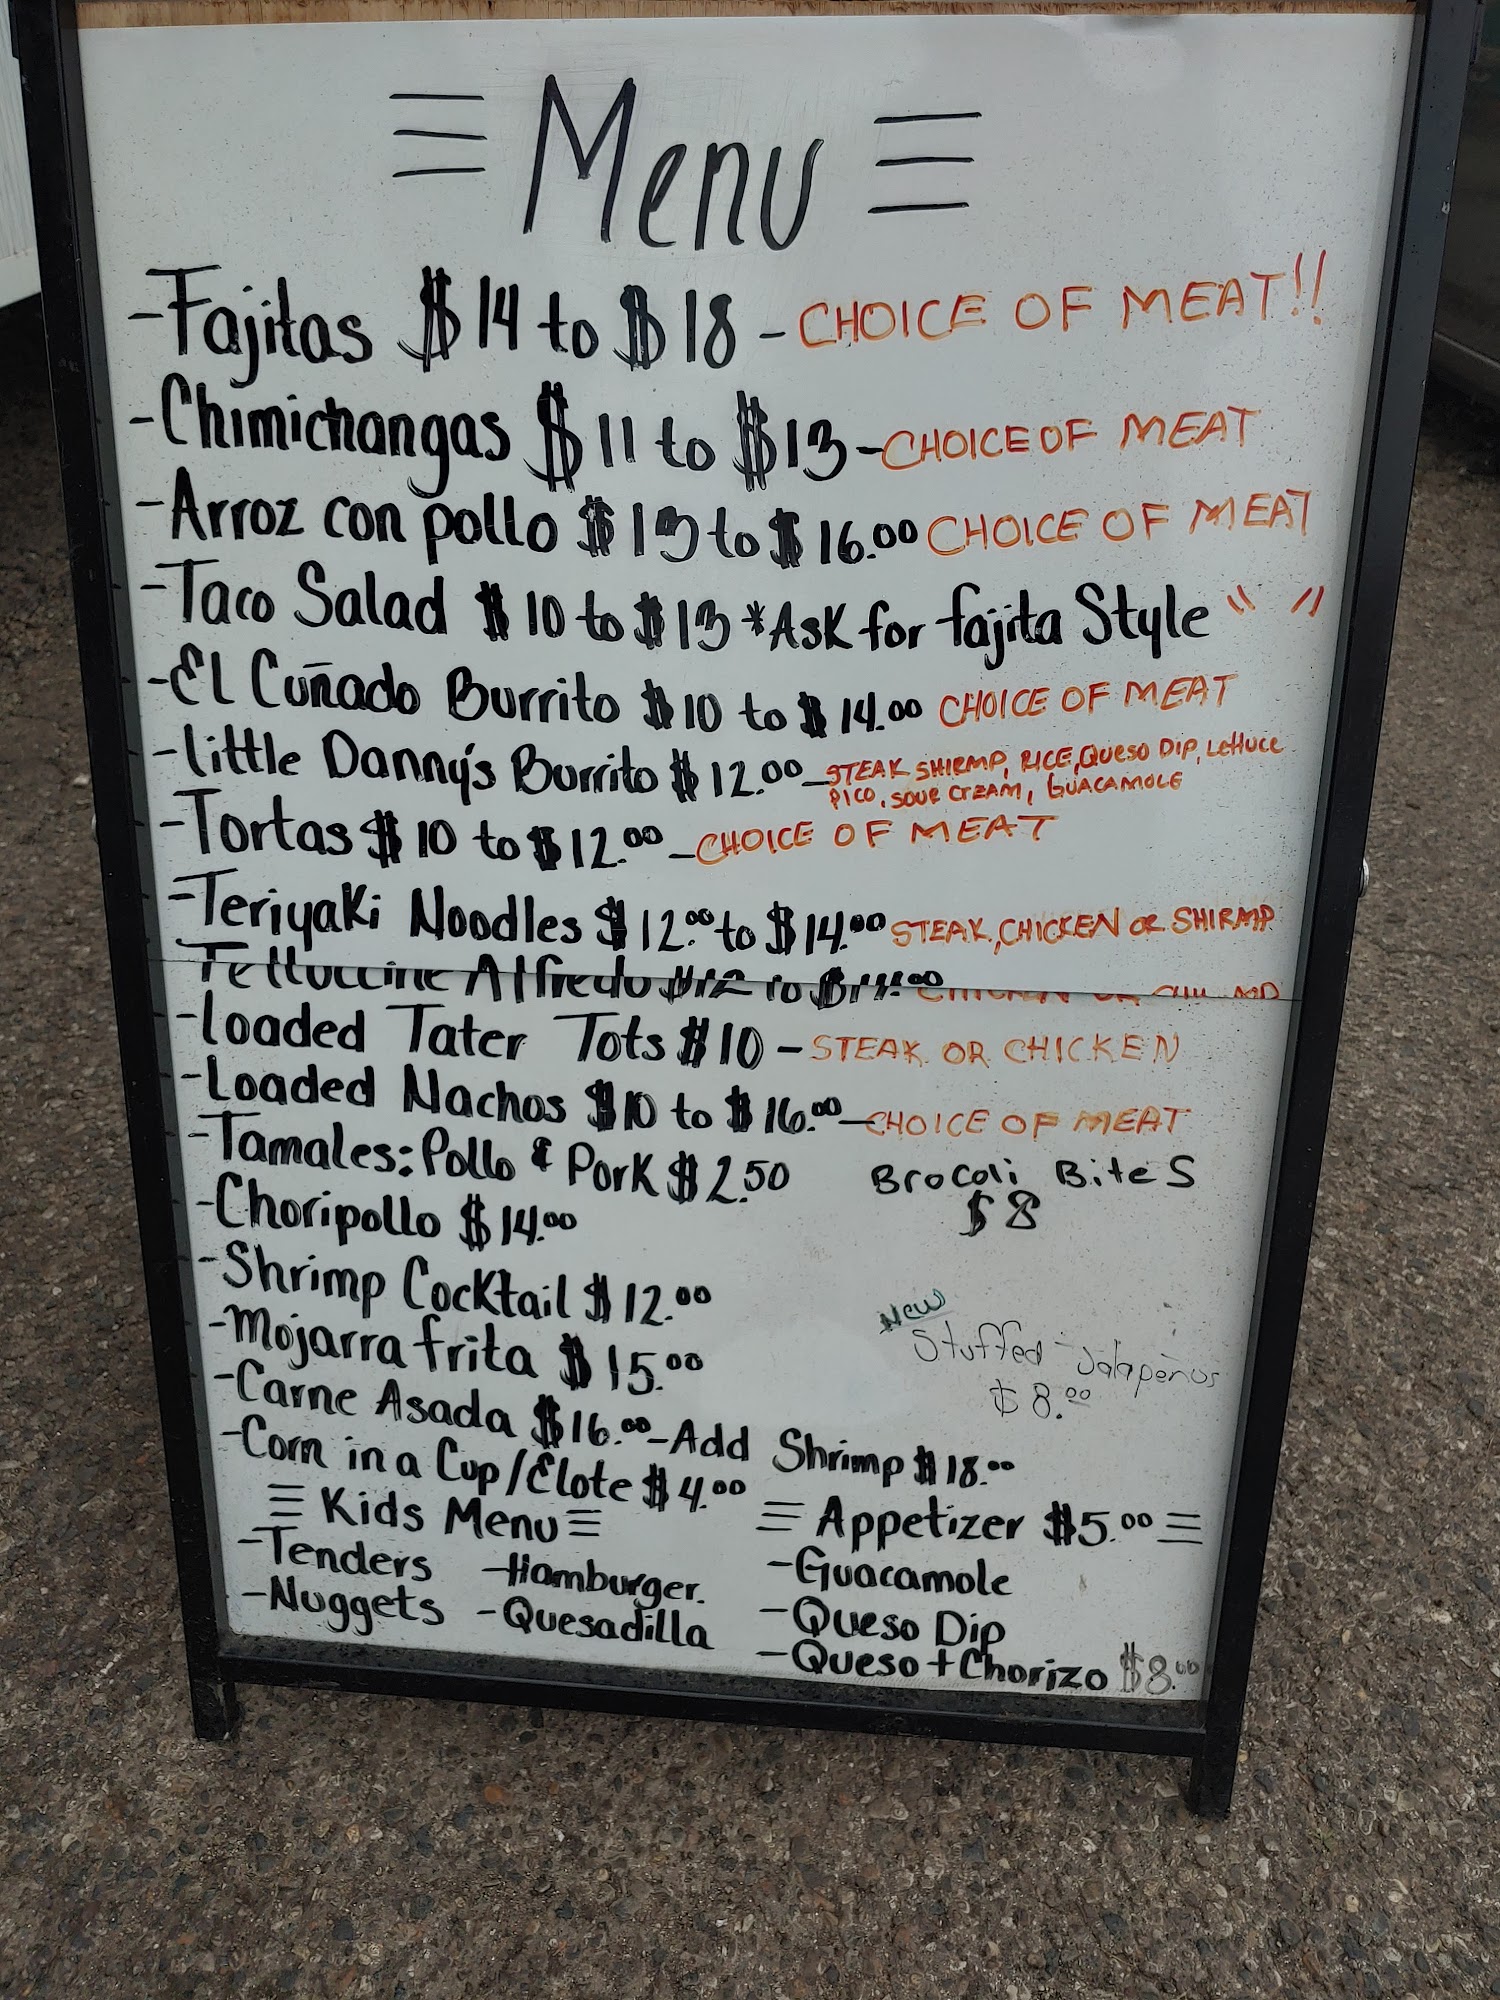 Menu
-Fajitas $14 to $18 - CHOICE OF MEAT!!
-Chimichangas $11 to $13 - CHOICE OF MEAT
-Arroz con pollo $13 to $16.00 CHOICE OF MEAT
-Taco Salad $10 to $13 *Ask for fajita Style " "
-El Cuñado Burrito $10 to $14.00 CHOICE OF MEAT
-little Danny's Burrito $12.00 - STEAK SHIRMP, RICE, QUESO DIP, LETTUCE
PICO, SOUR CREAM, GUACAMOLE
-Tortas $10 to $12.00 - CHOICE OF MEAT
-Teriyaki Noodles $12.00 to $14.00 STEAK, CHICKEN OR SHIRMP
Fettuccine Alfredo $12 to CHICKEN OR
-loaded Tater Tots $10 - STEAK OR CHICKEN
-Loaded Nachos $10 to $16.00 - CHOICE OF MEAT
-Tamales: Pollo & Pork $2.50
Brocoli Bites
$8
-Choripollo $14.00
-Shrimp Cocktail $12.00
-Mojarra frita $15.00
New
Stuffed Jalapeños
$8.00
-Carne Asada $16.00 - Add Shrimp $18.00
-Corn in a Cup/Elote $4.00
Kids Menu
-Tenders -Hamburger.
-Nuggets -Quesadilla
Appetizer $5.00
-Guacamole
-Queso Dip
-Queso + Chorizo $8.00